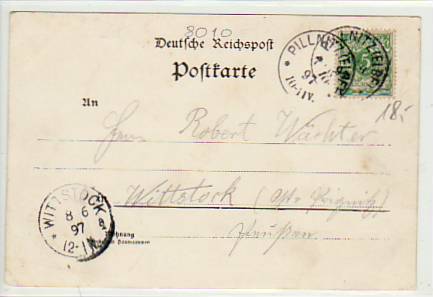 8010
Deutsche Reichspost
Postkarte
PILLNITZ (ELBE)
97
10-11V.
5
18.-
An
Herrn Robert Wächter
Wittstock (Ost Prignitz)
Preußen
WITTSTOCK
8 6
97
12-1N.
Wohnung